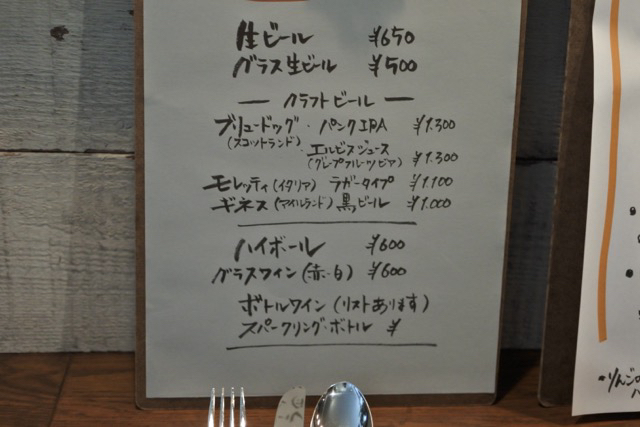 生ビール ¥650
グラス生ビール ¥500
― クラフトビール ―
ブリュードッグ・パンクIPA ¥1.300
(スコットランド)
・エルビスジュース
(グレープフルーツビア) ¥1.300
モレッティ(イタリア) ラガータイプ ¥1.100
ギネス(アイルランド) 黒ビール ¥1.000
ハイボール ¥600
グラスワイン(赤・白) ¥600
ボトルワイン(リストあります)
スパークリング・ボトル ¥
りんごの